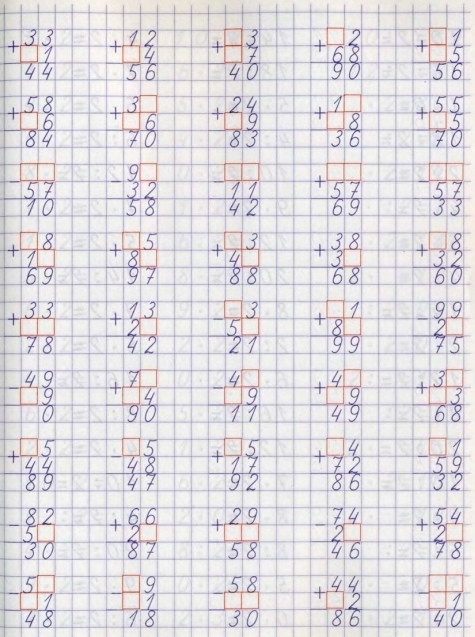 + 33 + 12 + □3 + □2 + □1
□1 □4 □7 68 □5
44 56 40 90 56
+ 58 + 3□ + 24 + 1□ + 55
□6 □6 □9 □8 □5
84 70 83 36 70
- □□ - 9□ - □□ + □□ - □□
57 32 11 57 57
10 58 42 69 33
+ □8 + □5 + □3 + 38 + □8
1□ 8□ 4□ 3□ 32
69 97 88 68 60
+ 33 + 13 - □3 + □1 - 99
□□ 2□ 5□ 8□ 2□
78 42 21 99 75
- 49 + 7□ - 4□ + 4□ + 3□
□9 □4 □9 □9 □3
0 90 11 49 68
+ □5 - □5 + □5 + □4 - □1
44 48 17 72 59
89 47 92 86 32
- 82 + 66 + 29 - 74 + 54
5□ 2□ □□ 2□ 2□
30 87 58 46 78
- 5□ - □9 - 58 + 44 - □□
□1 □1 □□ □2 □1
48 18 30 86 40